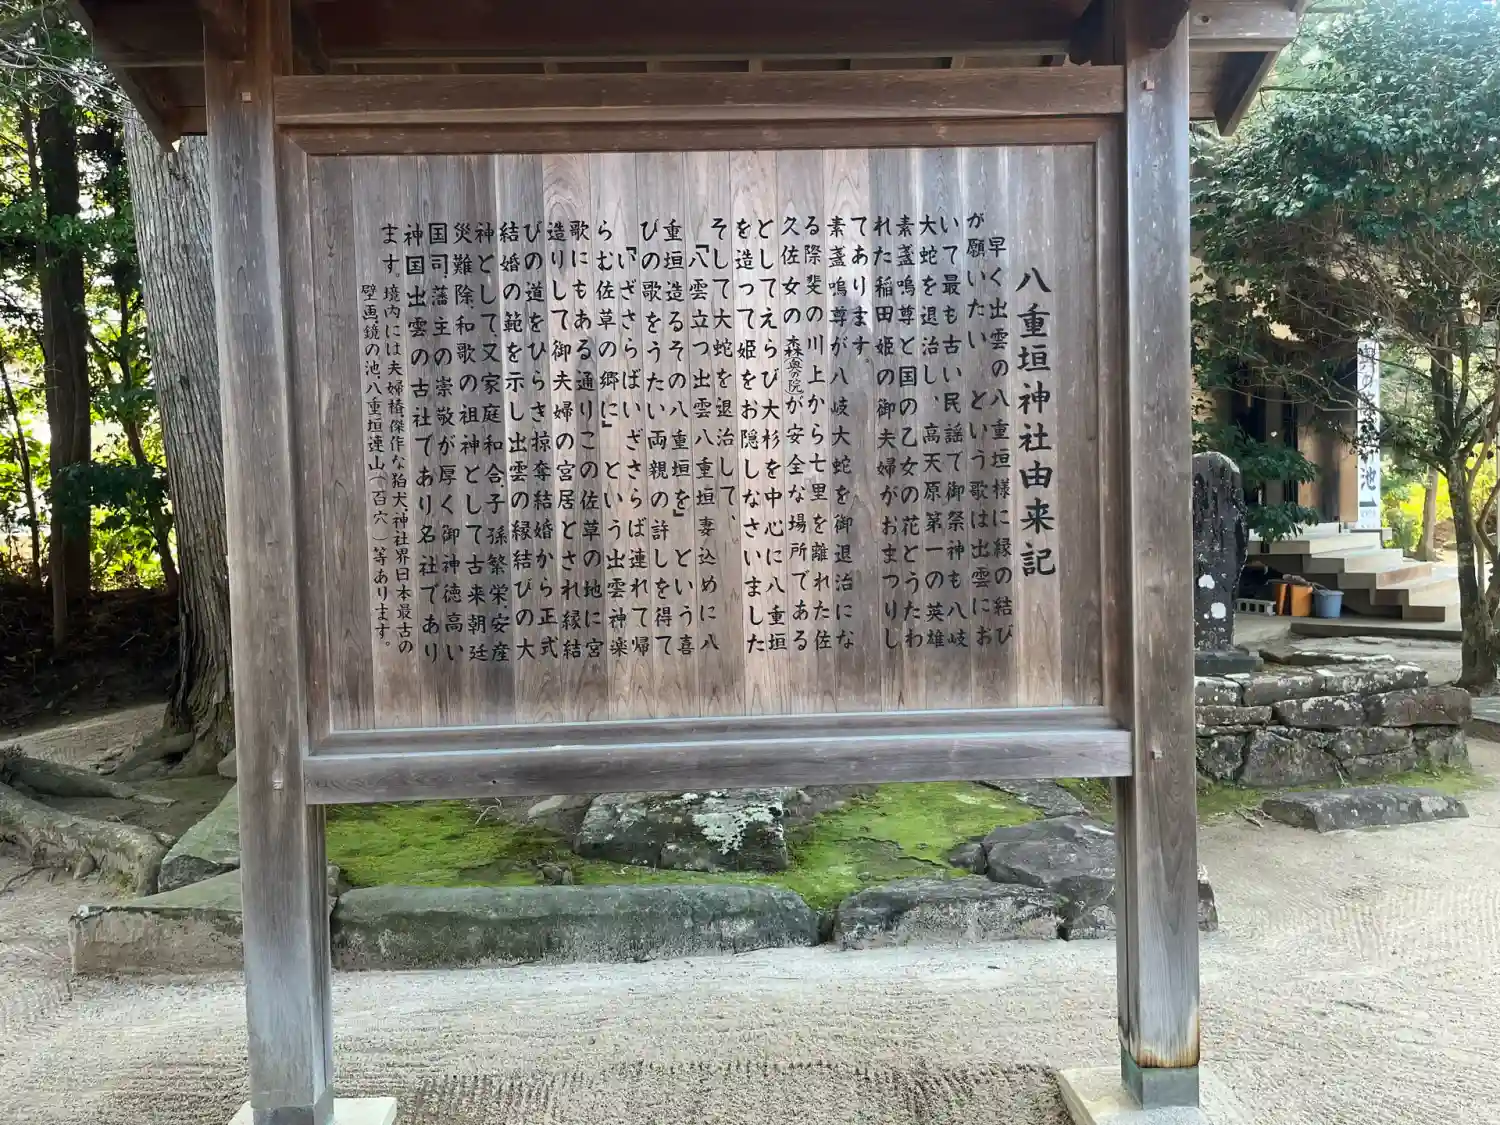 八重垣神社由来記
早く出雲の八重垣様に縁の結び
が願いたい という歌は出雲にお
いて最も古い民謡で御祭神も八岐
大蛇を退治し、高天原第一の英雄
素盞嗚尊と国の乙女の花とうたわ
れた稲田姫の御夫婦がおまつりし
てあります。
素盞嗚尊が八岐大蛇を御退治にな
る際斐の川上から七里を離れた佐
久佐女の森(奥の院)が安全な場所である
としてえらび大杉を中心に八重垣
を造って姫をお隠しなさいました
そして大蛇を退治して、
「八雲立つ出雲八重垣妻込めに八
重垣造るその八重垣を」という喜
びの歌をうたい両親の許しを得て
「いざさらばいざさらば連れて帰
らむ佐草の郷に」という出雲神楽
歌にもある通りこの佐草の地に宮
造りして御夫婦の宮居とされ縁結
びの道をひらき掠奪結婚から正式
結婚の範を示し出雲の縁結びの大
神として又家庭和合子孫繁栄、安産
災難除、和歌の祖神として古来朝廷
国司藩主の崇敬が厚く御神徳高い
神国出雲の古社であり名社であり
ます。境内には夫婦椿、傑作な狛犬、神社界日本最古の
壁画、鏡の池、八重垣連山(百穴)等あります。
池